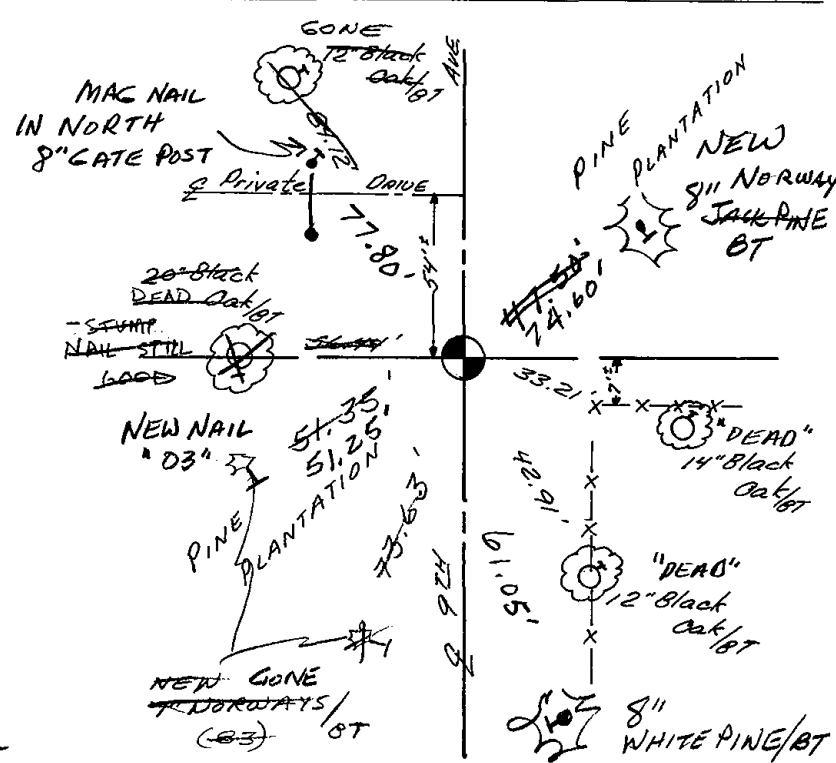 GONE
12" Black
Oak/BT
AVE.
MAG NAIL
IN NORTH
8" GATE POST
℄ Private DRIVE
77.80'
PINE
PLANTATION
NEW
8" NORWAY
JACK PINE
BT
74.60'
20" Black
DEAD Oak/BT
- STUMP
NAIL STILL
GOOD
33.21'
NEW NAIL
"03"
51.35'
51.25'
PINE
PLANTATION
73.63'
"DEAD"
14" Black
Oak/BT
42.91'
61.05'
"DEAD"
12" Black
Oak/BT
℄ 9TH
NEW GONE
NORWAYS/BT
8"
WHITE PINE/BT